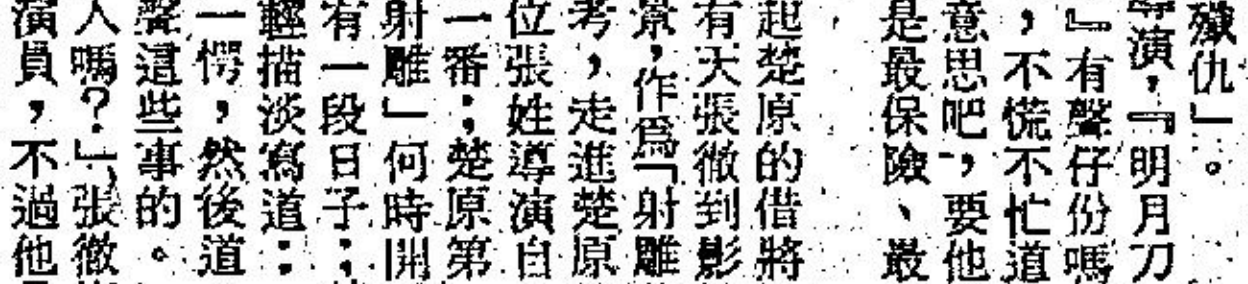 殲仇」。
導演，『明月刀
』有聲仔份嗎
，不慌不忙道
意思吧，要他
是最保險、最
起楚原的借將
有天張徹到影
景，作爲「射雕
考，走進楚原
位張姓導演自
一番；楚原第
射雕」何時開
有一段日子；
輕描淡寫道：
一愕，然後道
聲這些事的。
人嗎？」張徹
演員，不過他